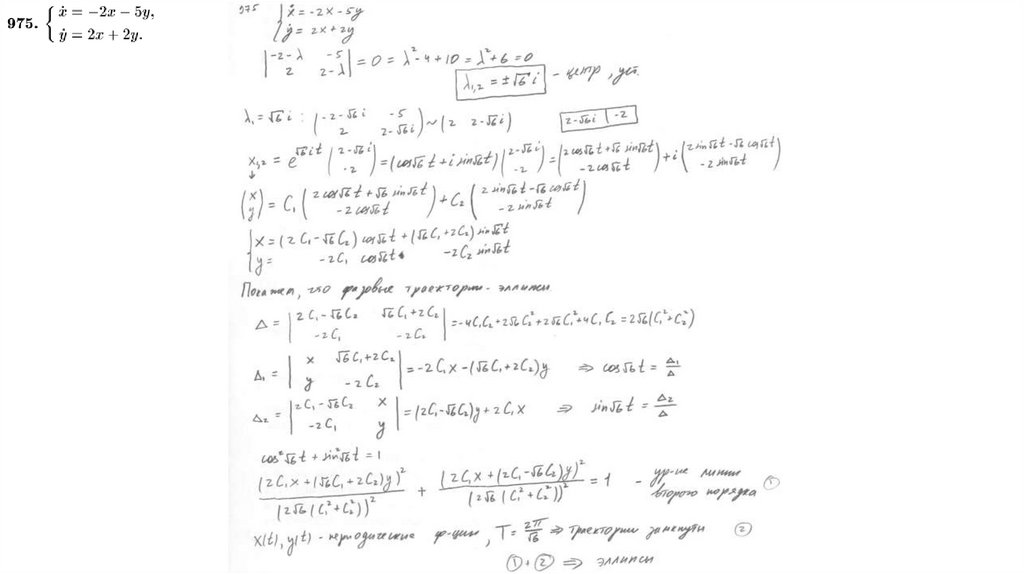 975. { ẋ = −2x − 5y,
ẏ = 2x + 2y.
975 { ẋ = -2x - 5y
ẏ = 2x + 2y
| -2-λ -5 |
| 2 2-λ | = 0 = λ² - 4 + 10 = λ² + 6 = 0
λ₁,₂ = ±√6 i - центр, уст.
λ₁ = √6 i : ( -2-√6 i -5 ; 2 2-√6 i ) ~ ( 2 2-√6 i ) 2-√6 i | -2
x₁,₂ = e^{√6 i t} ( 2-√6 i ; -2 ) = (cos√6 t + i sin√6 t) ( 2-√6 i ; -2 ) = ( 2cos√6 t + √6 sin√6 t ; -2cos√6 t ) + i ( 2sin√6 t - √6 cos√6 t ; -2sin√6 t )
( x ; y ) = C₁ ( 2cos√6 t + √6 sin√6 t ; -2cos√6 t ) + C₂ ( 2sin√6 t - √6 cos√6 t ; -2sin√6 t )
{ x = (2C₁ - √6 C₂) cos√6 t + (√6 C₁ + 2C₂) sin√6 t
y = -2C₁ cos√6 t -2C₂ sin√6 t
Покажем, что фазовые траектории - эллипсы
Δ = | 2C₁-√6 C₂ √6 C₁+2C₂ ; -2C₁ -2C₂ | = -4C₁C₂ + 2√6 C₂² + 2√6 C₁² + 4C₁C₂ = 2√6 (C₁² + C₂²)
Δ₁ = | x √6 C₁+2C₂ ; y -2C₂ | = -2C₁x - (√6 C₁ + 2C₂)y ⇒ cos√6 t = Δ₁/Δ
Δ₂ = | 2C₁-√6 C₂ x ; -2C₁ y | = (2C₁ - √6 C₂)y + 2C₁x ⇒ sin√6 t = Δ₂/Δ
cos²√6 t + sin²√6 t = 1
(2C₁x + (√6 C₁ + 2C₂)y)² / (2√6 (C₁² + C₂²))² + (2C₁x + (2C₁ - √6 C₂)y)² / (2√6 (C₁² + C₂²))² = 1 - ур-ие линии второго порядка ①
x(t), y(t) - периодические ф-ции, T = 2π/√6 ⇒ траектории замкнуты ②
① + ② ⇒ эллипсы